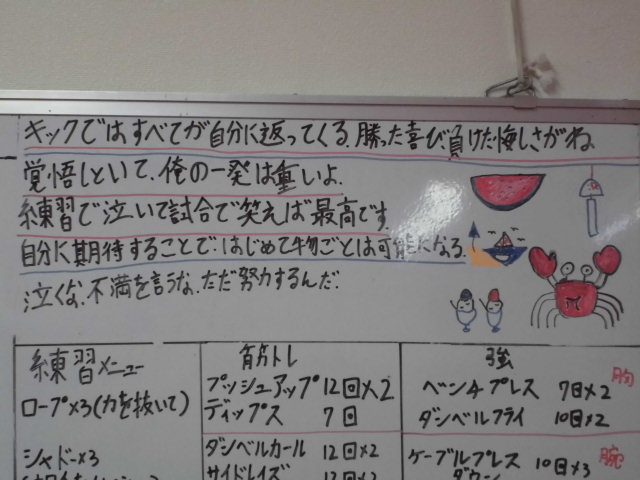 キックではすべてが自分に返ってくる。勝った喜び負けた悔しさがね
覚悟しといて、俺の一発は重いよ。
練習で泣いて試合で笑えば最高です。
自分に期待することで はじめて物ごとは可能になる。
泣くな。不満を言うな。ただ努力するんだ。
練習メニュー
ロープ×3(力を抜いて)
シャドー×3
筋トレ
プッシュアップ 12回×2
ディップス 7回
ダンベルカール 12回×2
サイドレイズ 12回×2
強 胸
ベンチプレス 7回×2
ダンベルフライ 10回×2
ケーブルプレス 10回×3 腕
ダウン